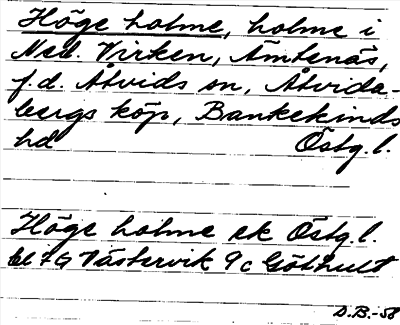 Höge holme, holme i
Ned. Virken, Ämtenäs,
f.d. Åtvids sn, Åtvida-
bergs köp, Bankekinds
hd Östg.l.
Höge holme ek Östg.l.
bl 7G Västervik 9c Göthult
D.B.-58